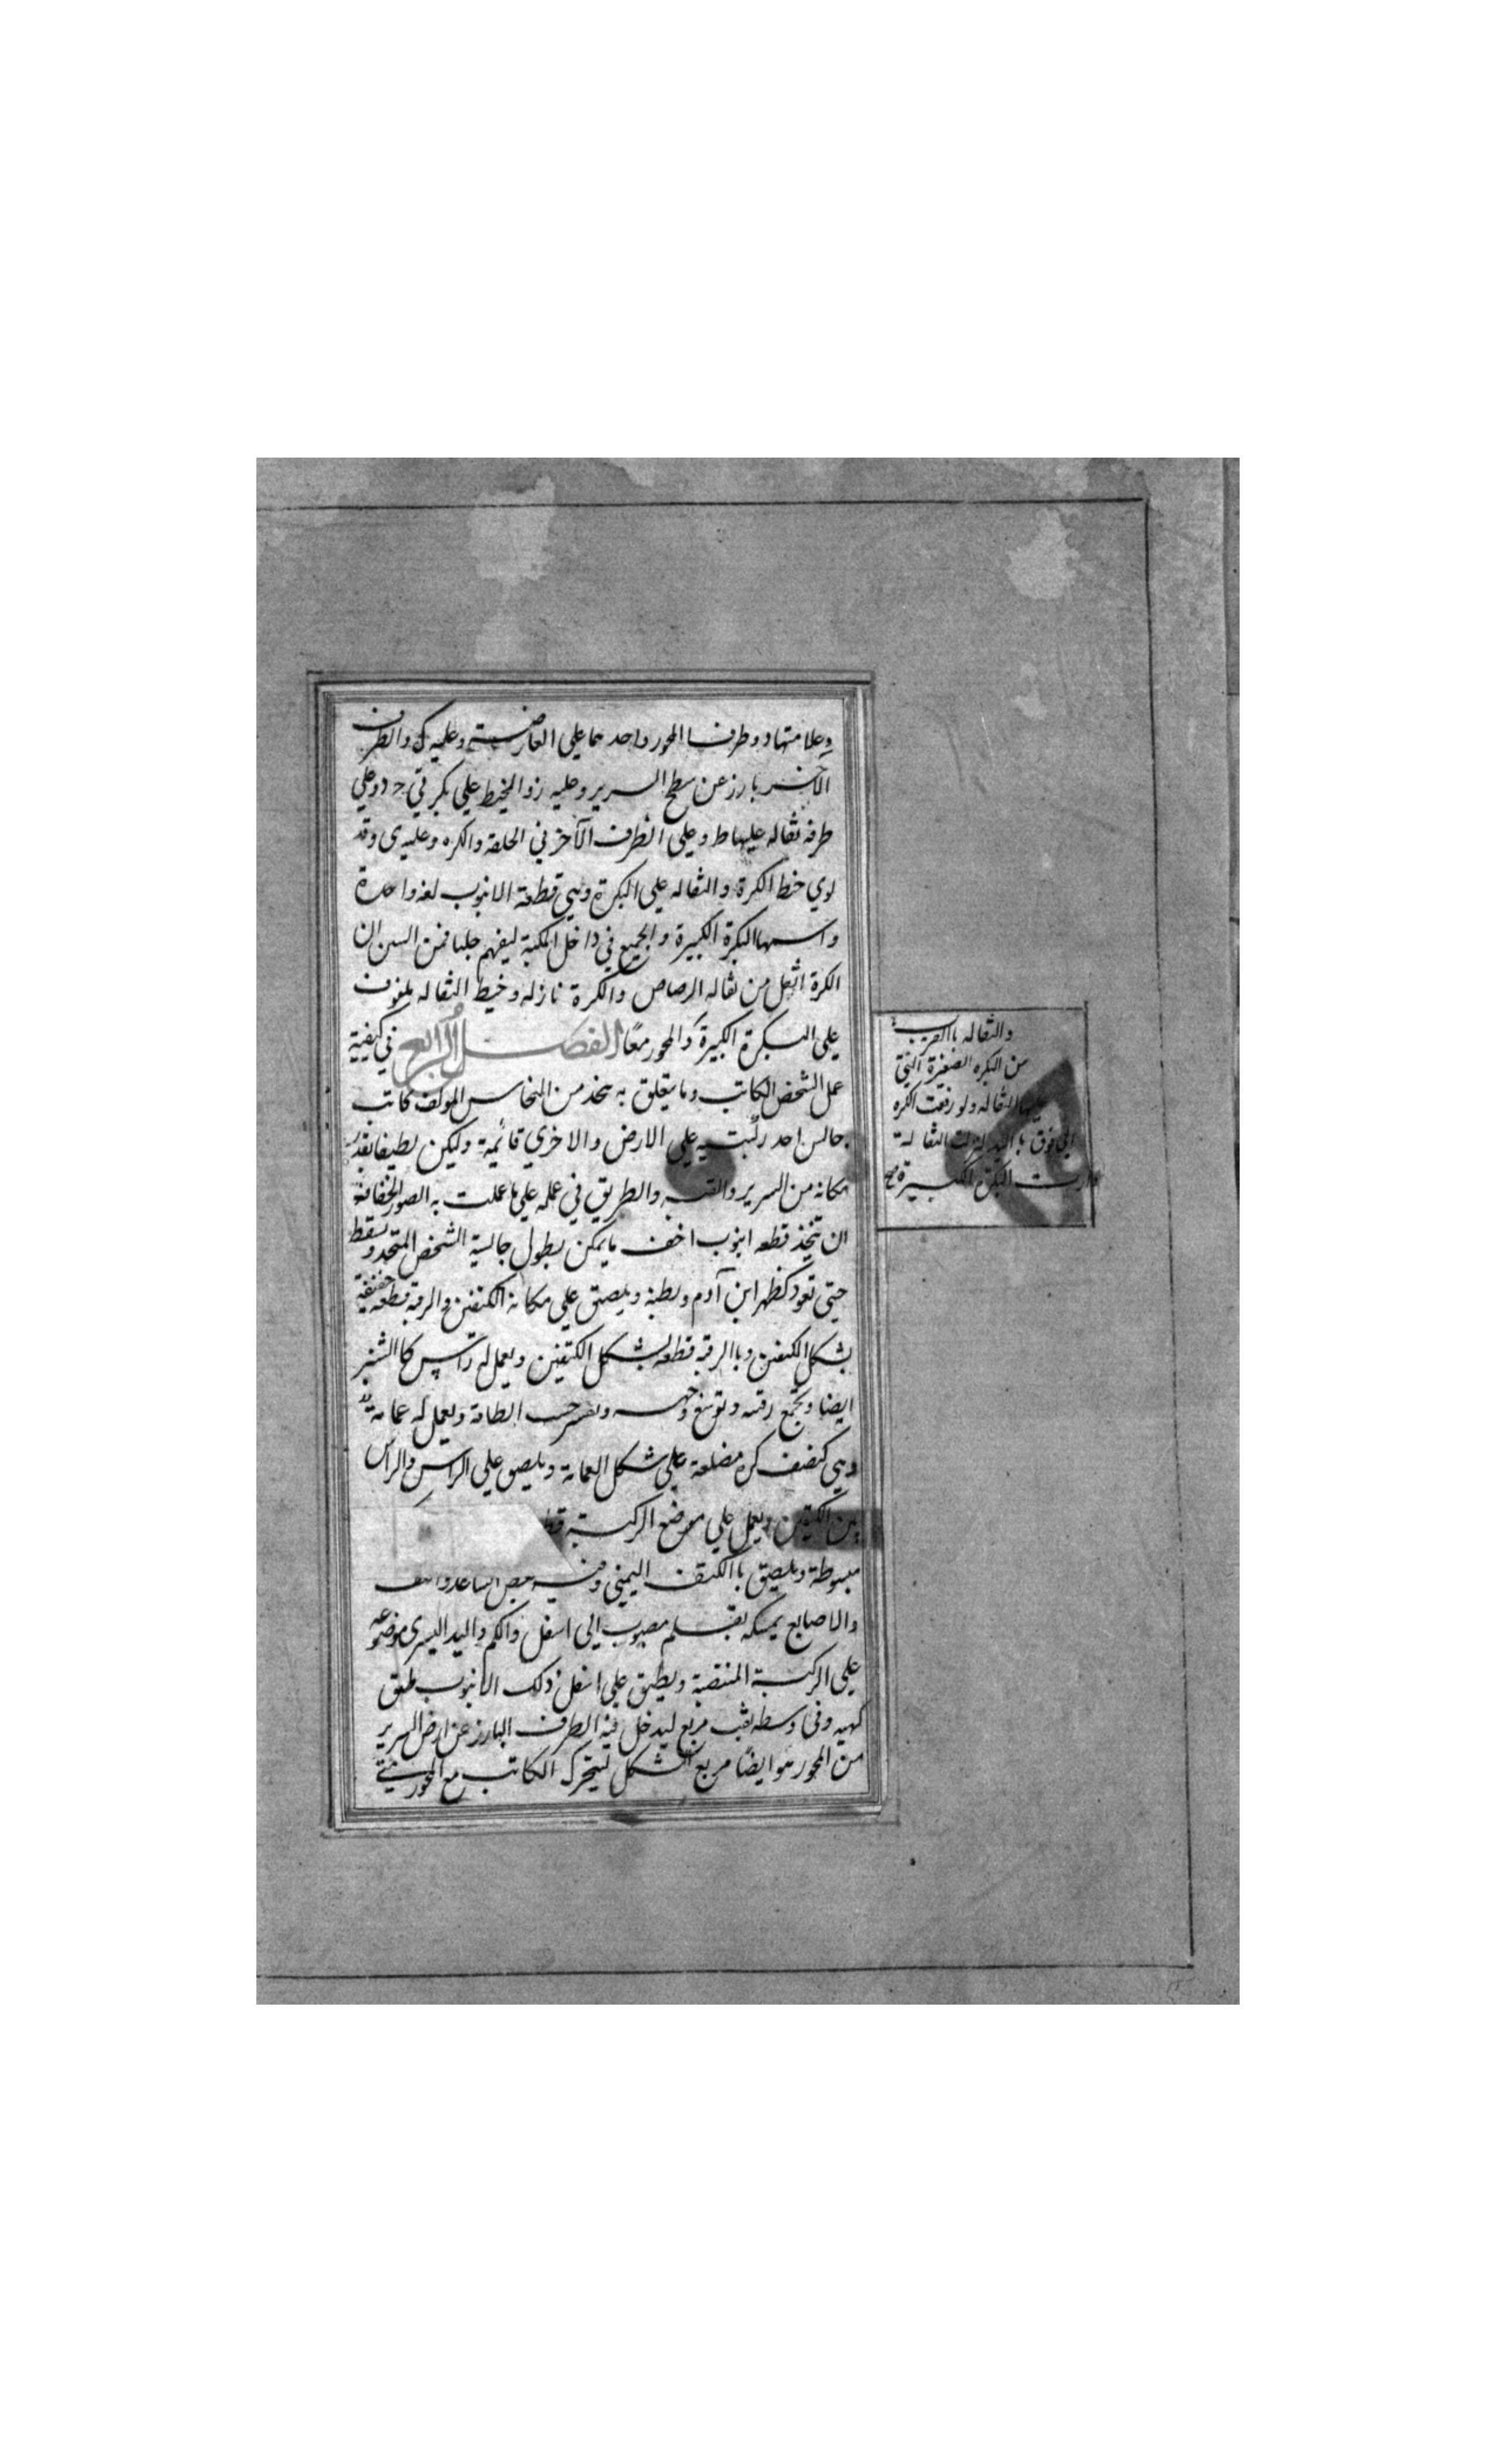 وعلامتها د وطرفا المحور واحدهما علي العارضة وعليه ك والطرف
الاخر بارز عن سطح السرير وعليه ز والخيط علي بكرتي ج د وعلي
طرفه ثقاله عليها ط وعلي الطرف الآخر في الحلقة والكره وعليه ى وقد
لوي خيط الكرة والثقاله علي البكرة وهي قطعة الانبوب لفه واحدة
واسمها البكرة الكبيرة والجميع في داخل المكبة ليفهم جليا فمن البين ان
الكرة اثقل من ثقالة الرصاص والكرة نازله وخيط الثقاله ملفوف
علي البكرة الكبيرة والمحور معًا الفصل الرابع في كيفية
عمل الشخص الكاتب وما يتعلق به يتخذ من النحاس المولف كاتب
جالس احد ركبتيه علي الارض والاخري قائمة وليكن لطيفا بقدر
مكانه من السرير والقبه والطريق في عمله علي ما عملت به الصور الخفافة
ان يتخذ قطعه انبوب اخف ما يمكن بطول جالسية الشخص المتخذ
حتي تعود كظهر ابن آدم وبطنه ويلصق علي مكانة الكتفين والرقبة قطعه خفيفة
بشكل الكتفين وباالرقبه قطعه بشكل الكتفين ويعمل له راس كا
ايضا ويجمع رقبته وجهه حسب الطاقة ويعمل له عمامة
وهي كنصف كره مضلعة علي شكل العمامة ويلصق علي الراس والراس
بين الكتفين ويعمل علي موضع الركبة
مبسوطة ويلصق باالكتف اليمني
والاصابع يمسكه بقلم مصبوب الي اسفل والكم واليد اليسرى موضوعه
علي الركبة المنتصبة ويطبق علي اسفل ذلك الانبوب طبق
كهيه وفي وسطه ثقب مربع ليدخل فيه الطرف البارز عن ارض السرير
من المحور هو ايضًا مربع الشكل ليتحرك الكاتب مع المحور
والثقاله باالقرب
من البكره الصغيرة التي
عليها الثقاله ولو رفعت الكره
الي فوق باليد لنزلت الثقالة
ودارت البكرة الكبيرة صح